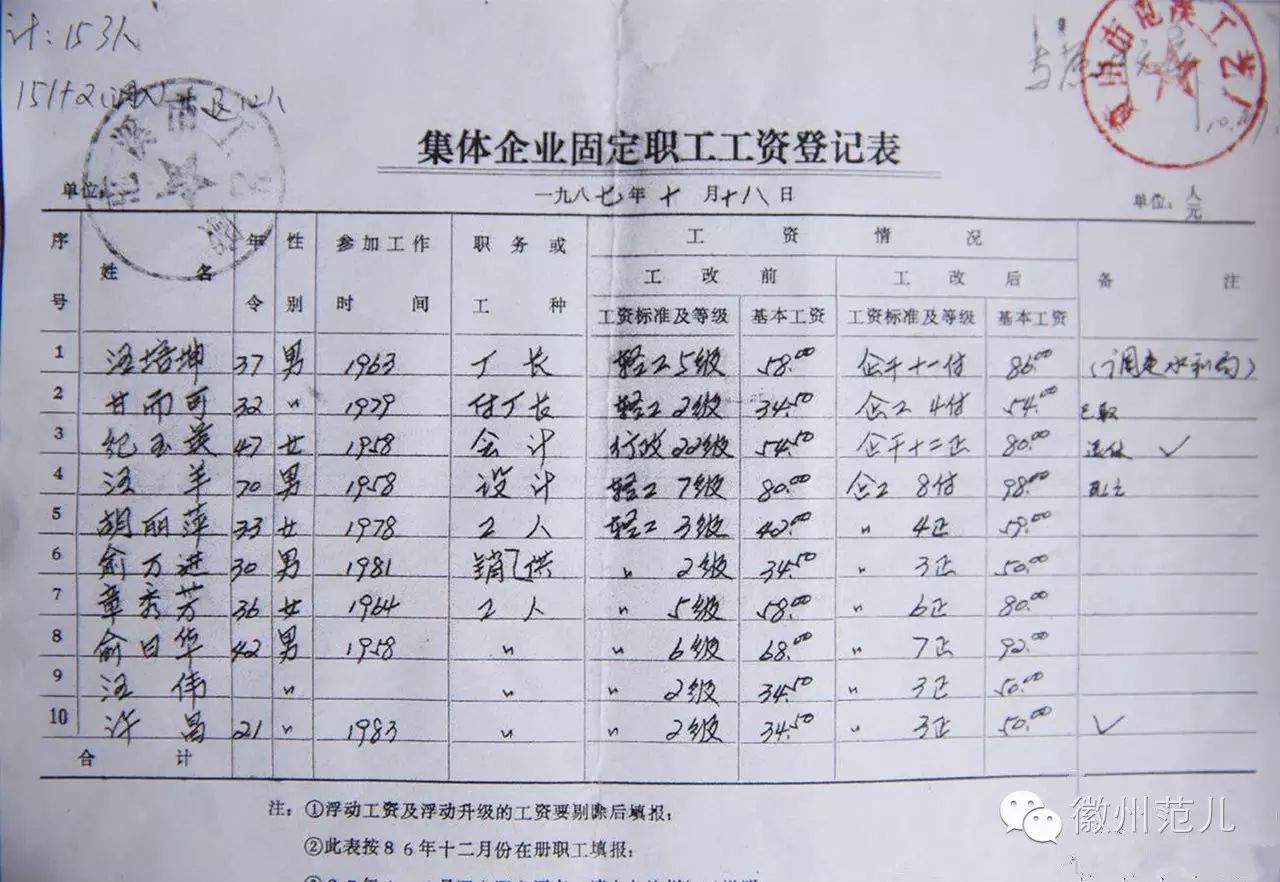 计:153人
151+2
集体企业固定职工工资登记表
单位:
一九八七年十月十八日
单位:人元
序号 姓名 年令 性别 参加工作时间 职务或工种 工资情况 备注
工改前 工改后
工资标准及等级 基本工资 工资标准及等级 基本工资
1 汪培坤 37 男 1963 厂长 轻工5级 58.00 企干十一付 86.00 (调走水利局)
2 甘而可 32 〃 1979 付厂长 轻工2级 34.50 企工4付 54.00
3 纪玉英 47 女 1958 会计 行政22级 54.50 企干十二正 80.00 退休 ✓
4 汪羊 70 男 1958 设计 轻工7级 80.00 企工8付 98.00
5 胡丽萍 33 女 1978 工人 轻工3级 40.00 〃 4正 59.00
6 俞万进 30 男 1981 〃 2级 34.50 〃 3正 50.00
7 章秀芳 36 女 1964 工人 〃 5级 58.00 〃 6正 80.00
8 俞日华 42 男 1958 〃 〃 6级 68.00 〃 7正 92.00
9 汪伟 〃 〃 〃 2级 34.50 〃 3正 50.00
10 许昌 21 〃 1983 〃 〃 2级 34.50 〃 3正 50.00 ✓
合计
注:①浮动工资及浮动升级的工资要剔除后填报;
②此表按86年十二月份在册职工填报;
徽州范儿